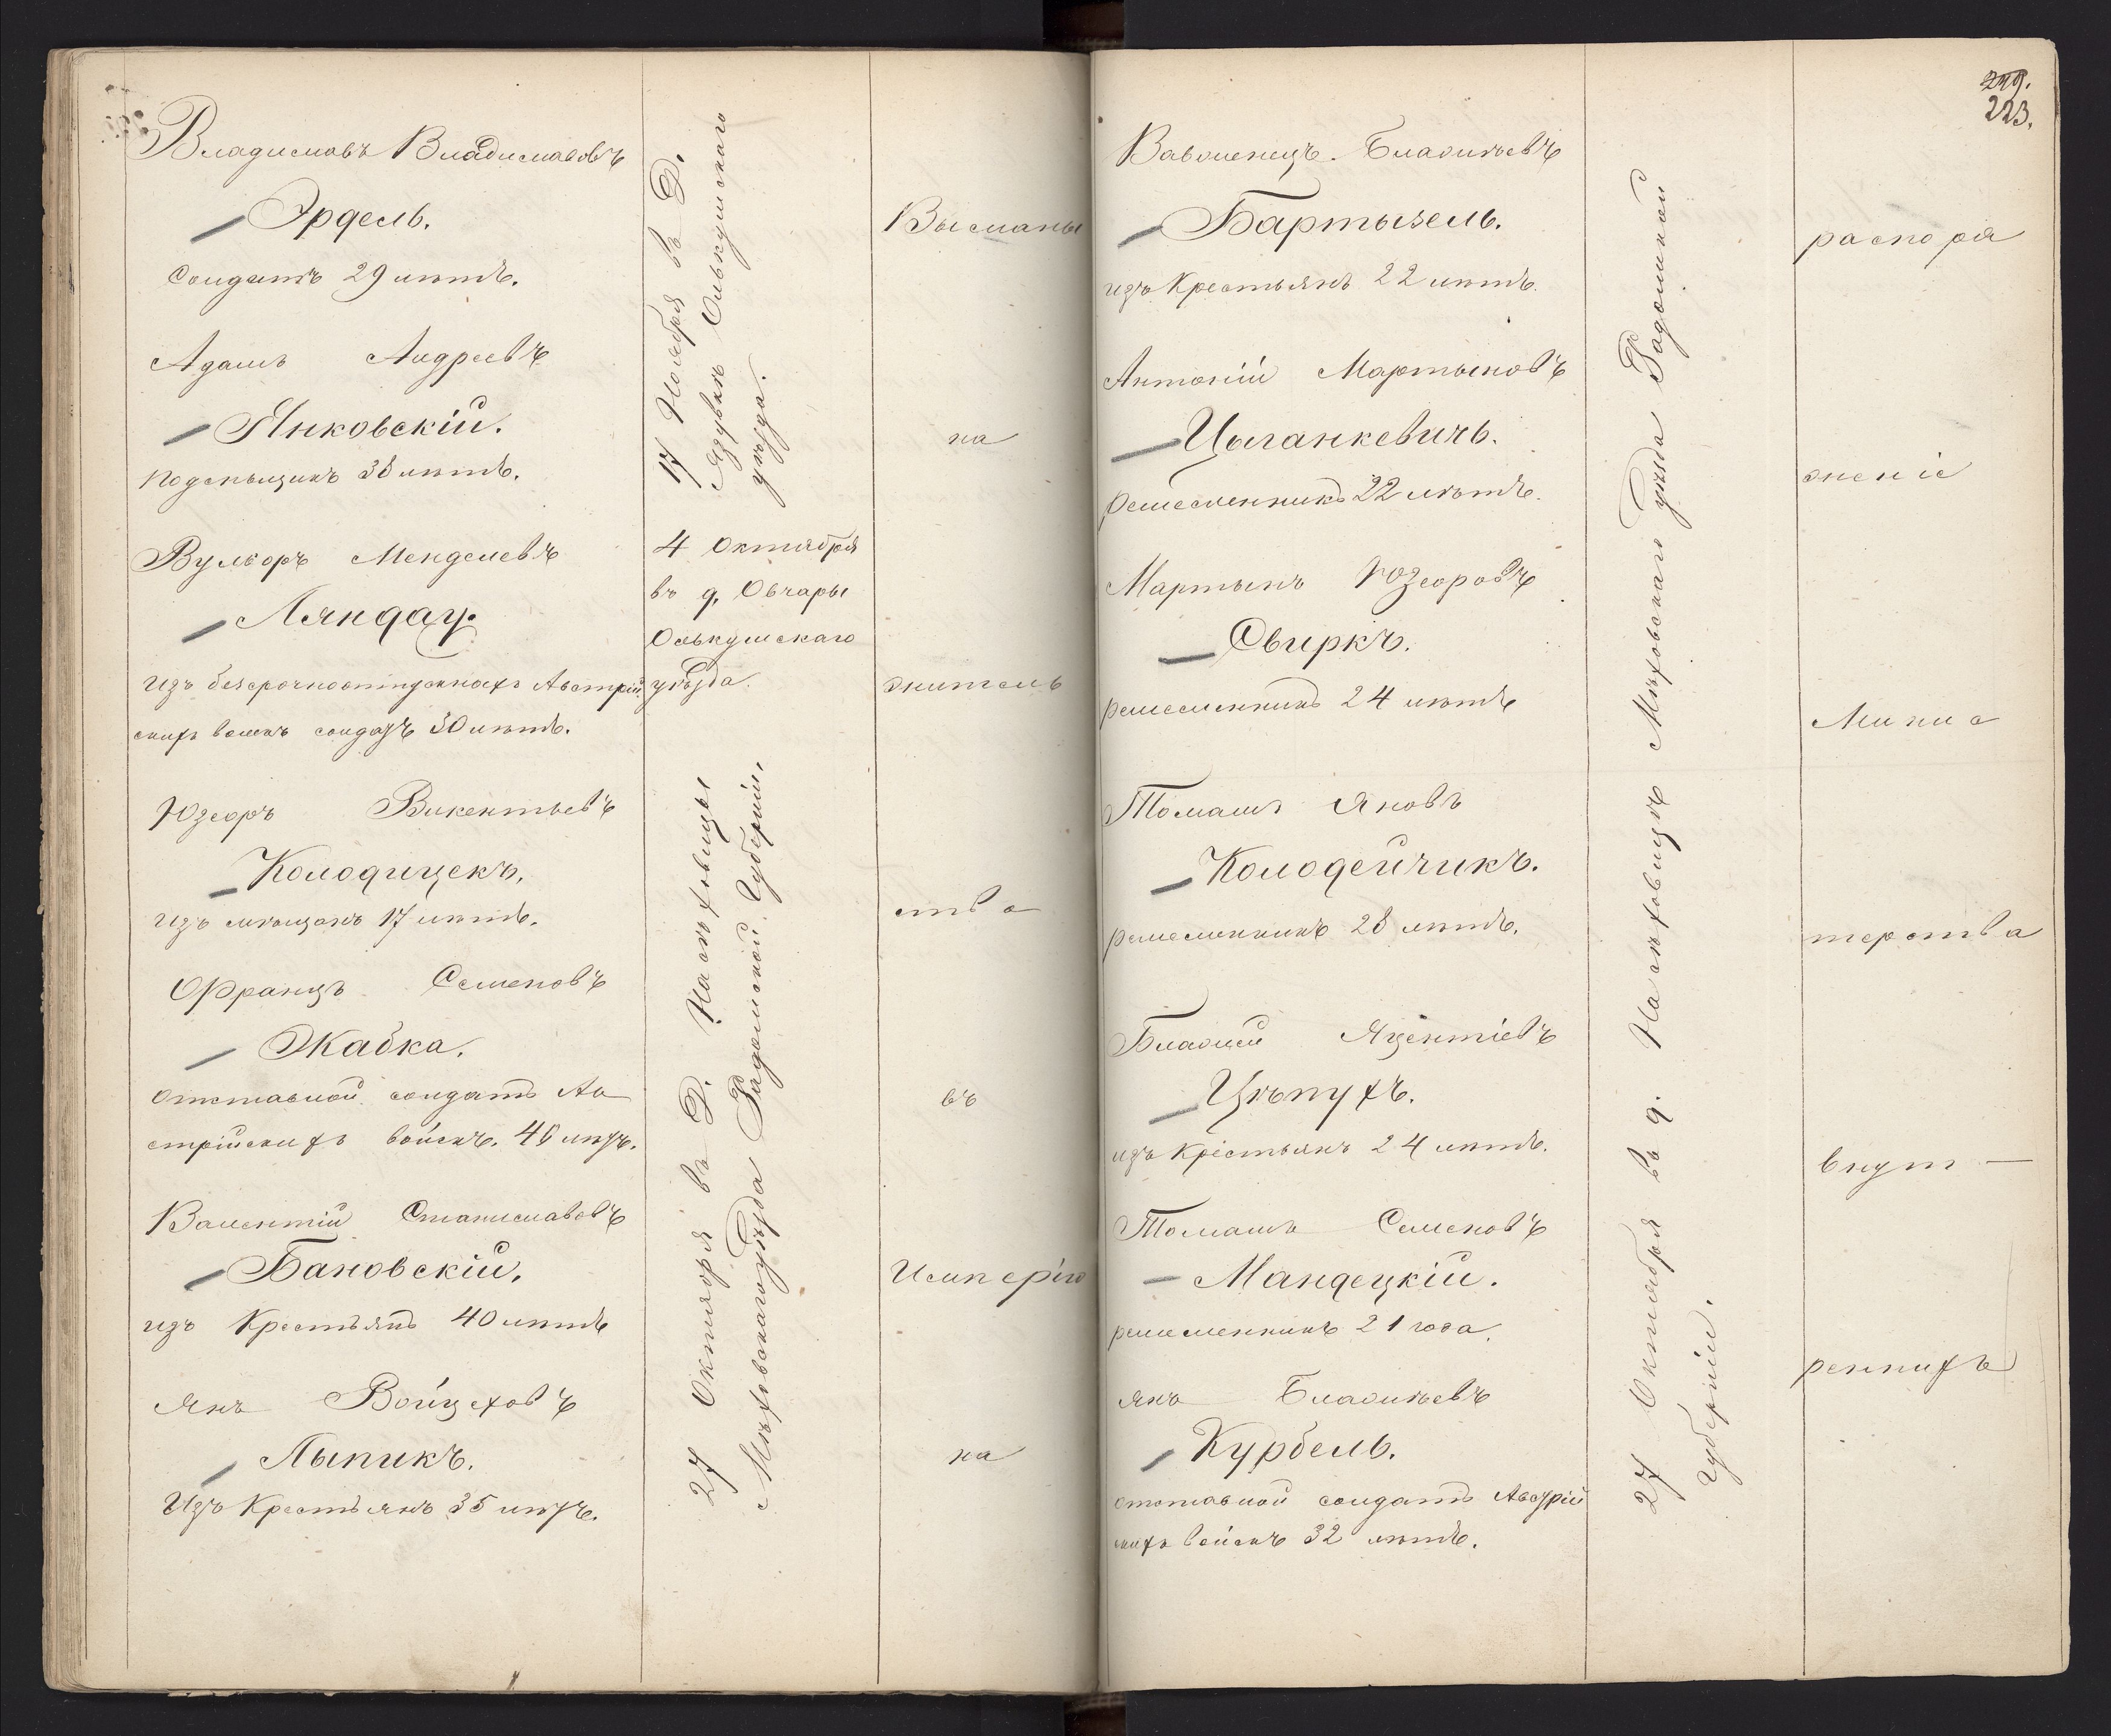 Владиславъ Владиславовъ
Эрдель.
Солдатъ 29 лѣтъ.
Адамъ Андреевъ
Янковскій.
Поденьщикъ 38 лѣтъ.
Вульфъ Менделевъ
Ляндау.
Изъ безсрочноотпускныхъ Австрій
скихъ войскъ солдатъ 30 лѣтъ.
Юзефъ Викентьевъ
Колодзицекъ,
изъ мѣщанъ 17 лѣтъ.
Францъ Семеновъ
Жабка.
отставной солдатъ Ав
стрійскихъ войскъ. 46 лѣтъ.
Валентій Станиславовъ
Бановскій,
изъ Крестьянъ 40 лѣтъ
Янъ Войцеховъ
Лыпикъ.
Изъ Крестьянъ 35 лѣтъ.
17 Ноября въ Д.
Олькушскаго
уѣзда.
4 Октября
въ д. Овчары
Олькушскаго
уѣзда.
27 Октября въ Д. Насѣховицы
Мѣховскаго Уѣзда Радомской Губерніи,
Высланы
на
жительь
ство
въ
Имперію
на
249.
223.
Вавженецъ Блажѣевъ
Бартызель.
изъ Крестьянъ 22 лѣтъ.
Антоній Мартыновъ
Цыганкевичъ.
Ремесленникъ 22 лѣтъ.
Мартынъ Юзефовъ
Свиркъ.
ремесленникъ 24 лѣтъ
Томашъ Яновъ
Колодейчикъ.
ремесленникъ 28 лѣтъ.
Блажей Яцентіевъ
Цѣпухъ.
изъ Крестьянъ 24 лѣтъ.
Томашъ Семеновъ
Мандецкій.
ремесленникъ 21 года.
Янъ Блажѣевъ
Курбель.
отставной солдатъ Австрій
скихъ войскъ 32 лѣтъ.
27 Октября въ д. Насѣховицѣ Мѣховскаго Уѣзда Радомской
Губерніи.
распоря
женіе
Мини с
терства
внут —
реннихъ